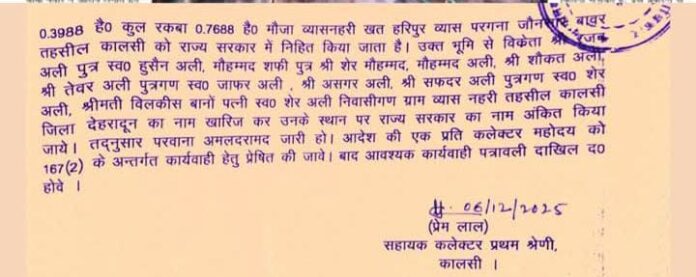 0.3988 है0 कुल रकबा 0.7688 है0 मौजा व्यासनहरी खत हरिपुर व्यास परगना जौनसार बावर
तहसील कालसी को राज्य सरकार में निहित किया जाता है। उक्त भूमि से विक्रेता श्री
अली पुत्र स्व0 हुसैन अली, मौहम्मद शफी पुत्र श्री शेर मौहम्मद, मौहम्मद अली, श्री शौकत अली,
श्री तेवर अली पुत्रगण स्व0 जाफर अली , श्री असगर अली, श्री सफदर अली पुत्रगण स्व0 शेर
अली, श्रीमती विलकीस बानों पत्नी स्व0 शेर अली निवासीगण ग्राम व्यास नहरी तहसील कालसी
जिला देहरादून का नाम खारिज कर उनके स्थान पर राज्य सरकार का नाम अंकित किया
जाये। तद्नुसार परवाना अमलदरामद जारी हो। आदेश की एक प्रति कलेक्टर महोदय को
167(2) के अन्तर्गत कार्यवाही हेतु प्रेषित की जावे। बाद आवश्यक कार्यवाही पत्रावली दाखिल द0
होवे ।
06/12/2025
(प्रेम लाल)
सहायक कलेक्टर प्रथम श्रेणी,
कालसी ।